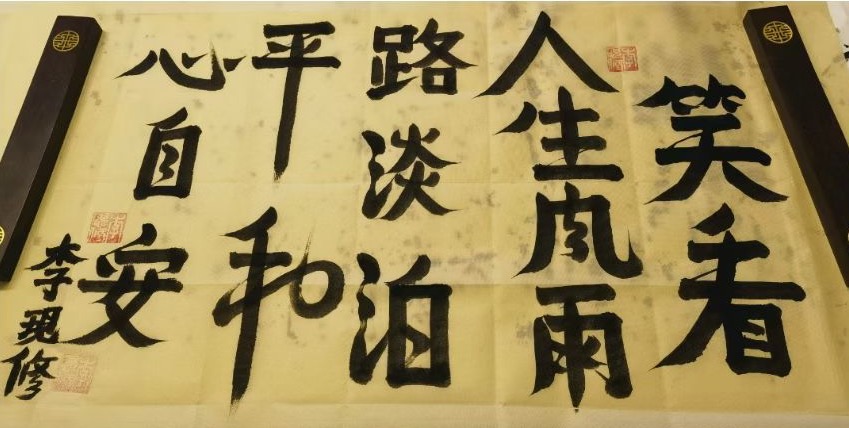 笑看
人生风雨
路淡泊
平和
心自安
李现修